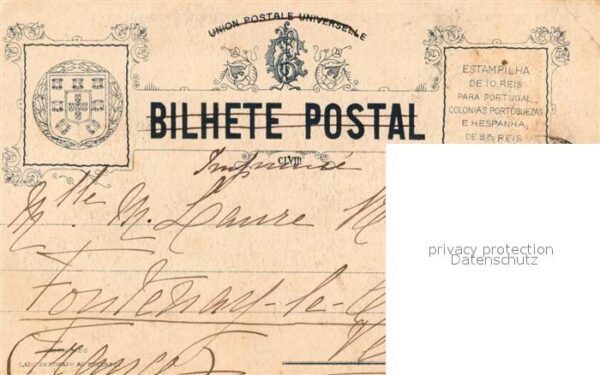 UNION POSTALE UNIVERSELLE
ESTAMPILHA
DE 10 REIS
PARA PORTUGAL,
COLONIAS PORTUGUEZAS
E HESPANHA,
DE 25 REIS
BILHETE POSTAL
CLVIII
Imprimé
Mlle M. Laure
privacy protection
Datenschutz
Fontenay-le-
(France)